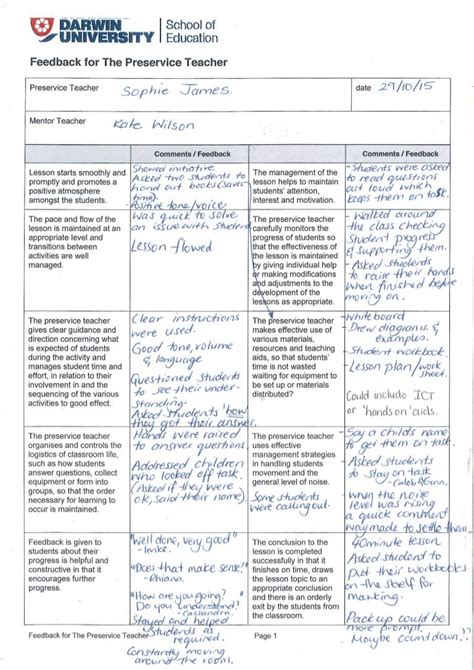 DARWIN
UNIVERSITY
School of
Education
Feedback for The Preservice Teacher
Preservice Teacher
Sophie James.
date 29/10/15
Mentor Teacher
Kate Wilson
Comments / Feedback
Lesson starts smoothly and
promptly and promotes a
positive atmosphere
amongst the students.
Showed initiative
Asked two students to
hand out books (saves
time).
Positive tone/voice.
The pace and flow of the
lesson is maintained at an
appropriate level and
transitions between
activities are well
managed.
Was quick to solve
an issue with student
Lesson flowed
The preservice teacher
gives clear guidance and
direction concerning what
is expected of students
during the activity and
manages student time and
effort, in relation to their
involvement in and the
sequencing of the various
activities to good effect.
Clear instructions
were used.
Good tone, volume
& language
Questioned students
to see their under-
standing.
Asked students 'how
they got their answer.
The preservice teacher
organises and controls the
logistics of classroom life,
such as how students
answer questions, collect
equipment or form into
groups, so that the order
necessary for learning to
occur is maintained.
Hands were raised
to answer questions.
Addressed children
who looked off task.
(Asked if they were
ok, said their name)
Feedback is given to
students about their
progress is helpful and
constructive in that it
encourages further
progress.
"Well done, very good"
"Does that make sense?"
- Rhiano.
"How are you going?
Do you understand?
- Cassandra.
Stayed and helped
students as
required.
Constantly moving
around the room.
Comments / Feedback
The management of the
lesson helps to maintain
students' attention,
interest and motivation.
- Students were asked
to read questions
out loud which
keeps them on task.
The preservice teacher
carefully monitors the
progress of students so
that the effectiveness of
the lesson is maintained
by giving individual help
or making modifications
and adjustments to the
development of the
lesson as appropriate.
- Walked around
the class checking
student progress
& supporting them.
- Asked students
to raise their hands
when finished before
moving on.
The preservice teacher
makes effective use of
various materials,
resources and teaching
aids, so that students'
time is not wasted
waiting for equipment to
be set up or materials
distributed?
- Whiteboard
- Drew diagrams &
examples.
- Student workbook.
- Lesson plan/work
sheet.
Could include ICT
or 'hands on' aids.
The preservice teacher
uses effective
management strategies
in handling students
movement and the
general level of noise.
Some students
were calling out.
- Say a childs name
to get them on task.
- Asked students
to stay on task
- when the noise
level was rising
a quick comment
was made to settle them.
The conclusion to the
lesson is completed
successfully in that it
finishes on time, draws
the lesson topic to an
appropriate conclusion
and there is an orderly
exit by the students from
the classroom.
40 minute lesson
Asked student to
put their workbooks
on the shelf for
marking.
Pack up could be
more prompt.
Maybe countdown??
Feedback for The Preservice Teacher
Page 1